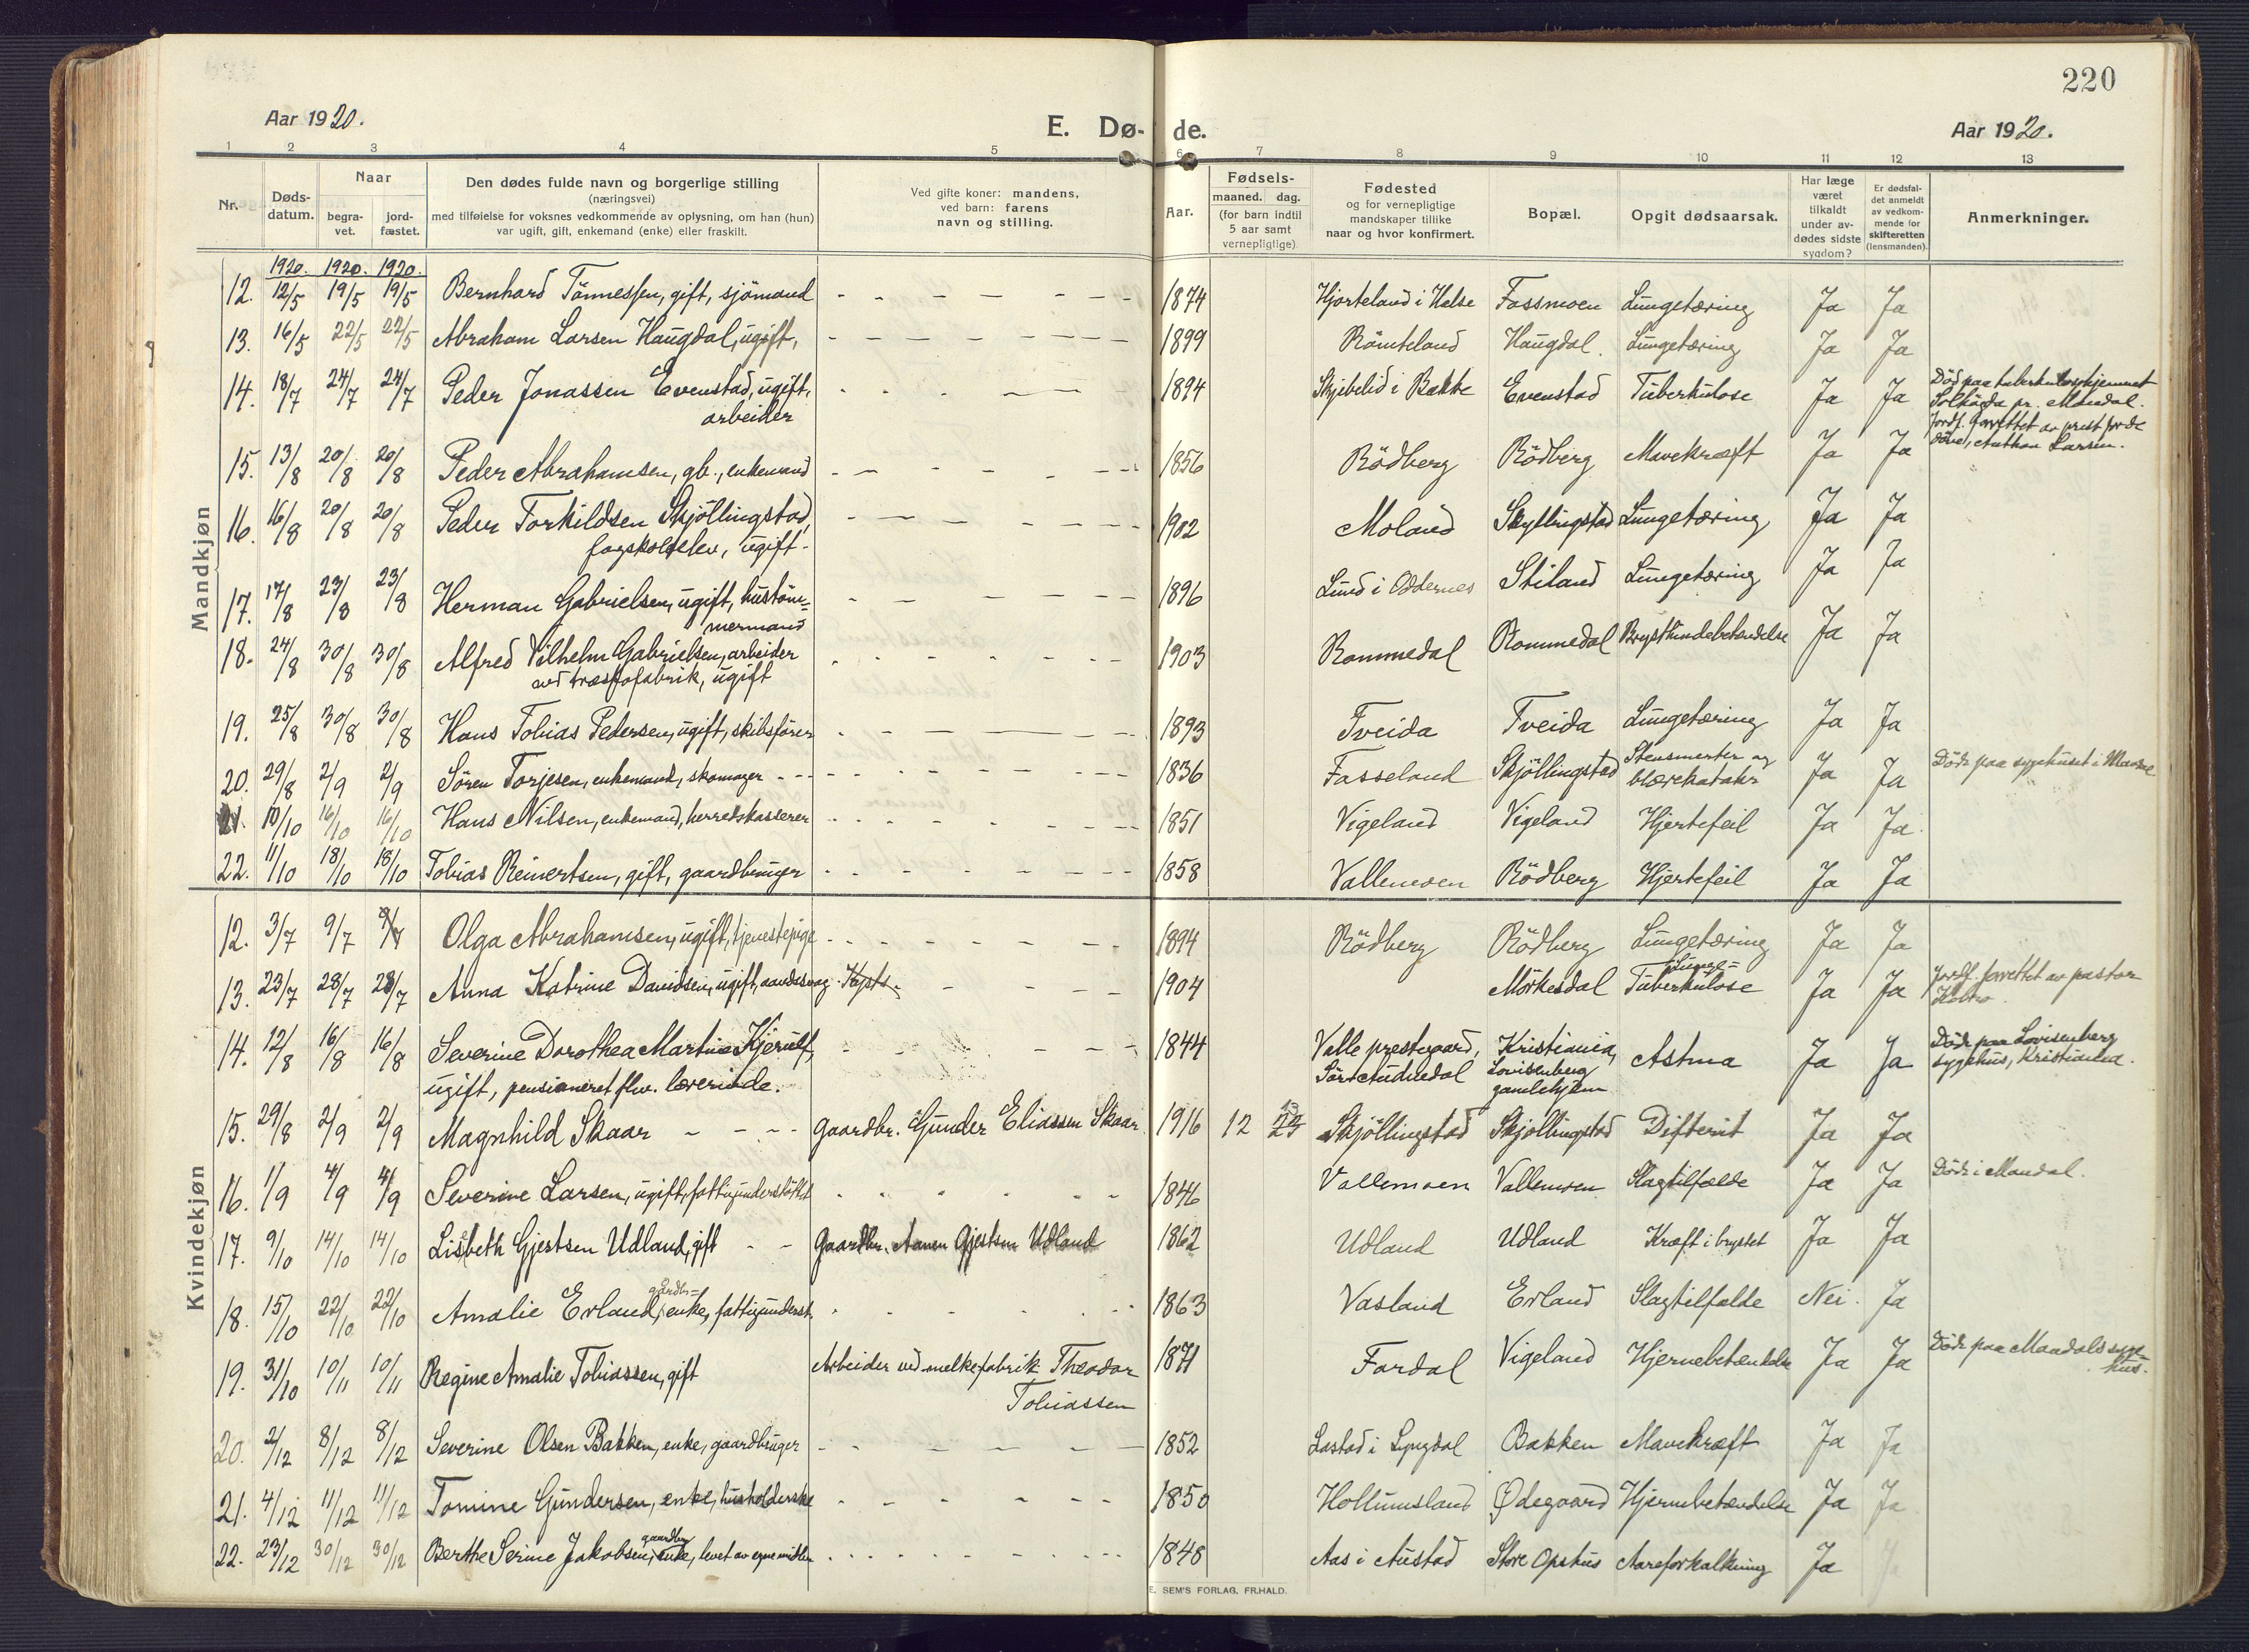 220
Aar 1920.
E. Dø-de.
Aar 1920.
1 2 3 4 5 6 7 8 9 10 11 12 13
Nr.
Døds-datum.
Naar
begra-vet.
jord-fæstet.
Den dødes fulde navn og borgerlige stilling
(næringsvei)
med tilføielse for voksnes vedkommende av oplysning, om han (hun)
var ugift, gift, enkemand (enke) eller fraskilt.
Ved gifte koner: mandens,
ved barn: farens
navn og stilling.
Aar.
Fødsels-
maaned. dag.
(for barn indtil
5 aar samt
vernepligtige)
Fødested
og for vernepligtige
mandskaper tillike
naar og hvor konfirmert.
Bopæl.
Opgit dødsaarsak.
Har læge
været
tilkaldt
under av-
dødes sidste
sygdom?
Er dødsfal-
det anmeldt
av vedkom-
mende for
skifteretten
(lensmanden).
Anmerkninger.
Mandkjøn
1920. 1920. 1920.
12. 12/5 19/5 19/5 Bernhard Tönnessen, gift, sjömand 1874 Hjorteland i Halse Fossmoen Lungetæring Ja Ja
13. 16/5 22/5 22/5 Abraham Larsen Haugdal, ugift, 1899 Römteland Haugdal. Lungetæring Ja Ja
14. 18/7 24/7 24/7 Peder Jonassen Evenstad, ugift, 1894 Skjebelid i Bakke Evenstad Tuberkulose Ja Ja Död paa tuberkuloschjemmet
arbeider Solhögda pr. Mandal.
Jordf. forrettet av prest for de
döve, Anthon Larsen.
15. 13/8 20/8 20/8 Peder Abrahamsen, gb., enkemand 1856 Rödberg Rödberg Mavekræft Ja Ja
16. 16/8 20/8 20/8 Peder Torkildsen Skjöllingstad, 1902 Moland Skyllingstad Lungetæring Ja Ja
fagskoleelev, ugift.
17. 17/8 23/8 23/8 Herman Gabrielsen, ugift, hustöm= 1896 Lund i Oddernes Stiland Lungetæring Ja Ja
mermand
18. 24/8 30/8 30/8 Alfred Vilhelm Gabrielsen, arbeider 1903 Rommedal Rommedal Brysthindebetændelse Ja Ja
ved træstofabrik, ugift
19. 25/8 30/8 30/8 Hans Tobias Pedersen, ugift, skibsförer 1893 Tveida Tveida Lungetæring Ja Ja
20. 29/8 2/9 2/9 Sören Torjesen, enkemand, skomager 1836 Fasseland Skjöllingstad Stensmerter og Ja Ja Döde paa sygehuset i
blærekatahr
21. 10/10 16/10 16/10 Hans Nilsen, enkemand, herredskasserer 1851 Vigeland Vigeland Hjertefeil Ja Ja.
22. 11/10 18/10 18/10 Tobias Reinertsen, gift, gaardbruger 1858 Vallemoen Rödberg Hjertefeil Ja Ja
Kvindekjøn
12. 3/7 9/7 9/7 Olga Abrahamsen, ugift, tjenestepige 1894 Rödberg Rödberg Lungetæring Ja Ja
13. 23/7 28/7 28/7 Anna Katrine Davidsen, ugift, aandssvag 1904 Mörkesdal Lunge=
Tuberkulose Ja Ja Jordf. forrettet av pastor
14. 12/8 16/8 16/8 Severine Dorothea Martine Kjerulf, 1844 Valle prestegaard, Kristiania, Astma Ja Ja Döde paa Lovisenberg
ugift, pensioneret fhv. lærerinde. Sör Audnedal Lovisenberg sygehus, Kristiania.
gamlehjem
15. 29/8 2/9 2/9 Magnhild Skaar Gaardbr. Gunder Eliassen Skaar 1916 12 Skjöllingstad Skjöllingstad Difterit Ja Ja
16. 1/9 4/9 4/9 Severine Larsen, ugift, fattigunderstöttet 1846 Vallemoen Vallemoen Slagtilfælde Ja Ja Döde i Mandal.
17. 9/10 14/10 14/10 Lisbeth Gjertsen Udland, gift Gaardbr. Aanen Gjertsen Udland 1862 Udland Udland Kræft i brystet Ja Ja
18. 15/10 22/10 22/10 Amalie Erland, gardbr= enke, fattigunderst. 1863 Vasland Erland Slagtilfælde Nei. Ja
19. 31/10 10/11 10/11 Regine Amalie Tobiassen, gift Arbeider ved melkefabrik Theodor 1871 Fardal Vigeland Hjernebetændelse Ja Ja Döde paa Mandals syge-
Tobiassen hus.
20. 2/12 8/12 8/12 Severine Olsen Bakken, enke, gaardbruger 1852 Lastad i Lyngdal Bakken Mavekræft Ja Ja
21. 4/12 11/12 11/12 Tomine Gundersen, enke, husholderske 1850 Hollumsland Ödegaard Hjernebetændelse Ja Ja
22. 23/12 30/12 30/12 Berthe Serine Jakobsen, gaardbr enke, levet av egne midler 1848 Aas i Austad Store Opshus Aareforkalkning Ja
E. SEM'S FORLAG, FR.HALD.